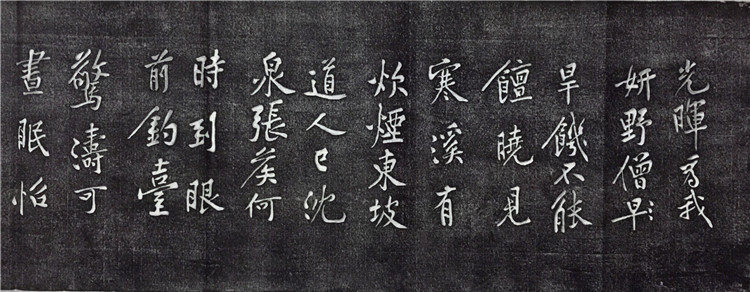 光暉為我
妍野僧早
旱饑不能
饘曉見
寒溪有
炊煙東坡
道人已沈
泉張侯何
時到眼
前釣臺
驚濤可
晝眠怡